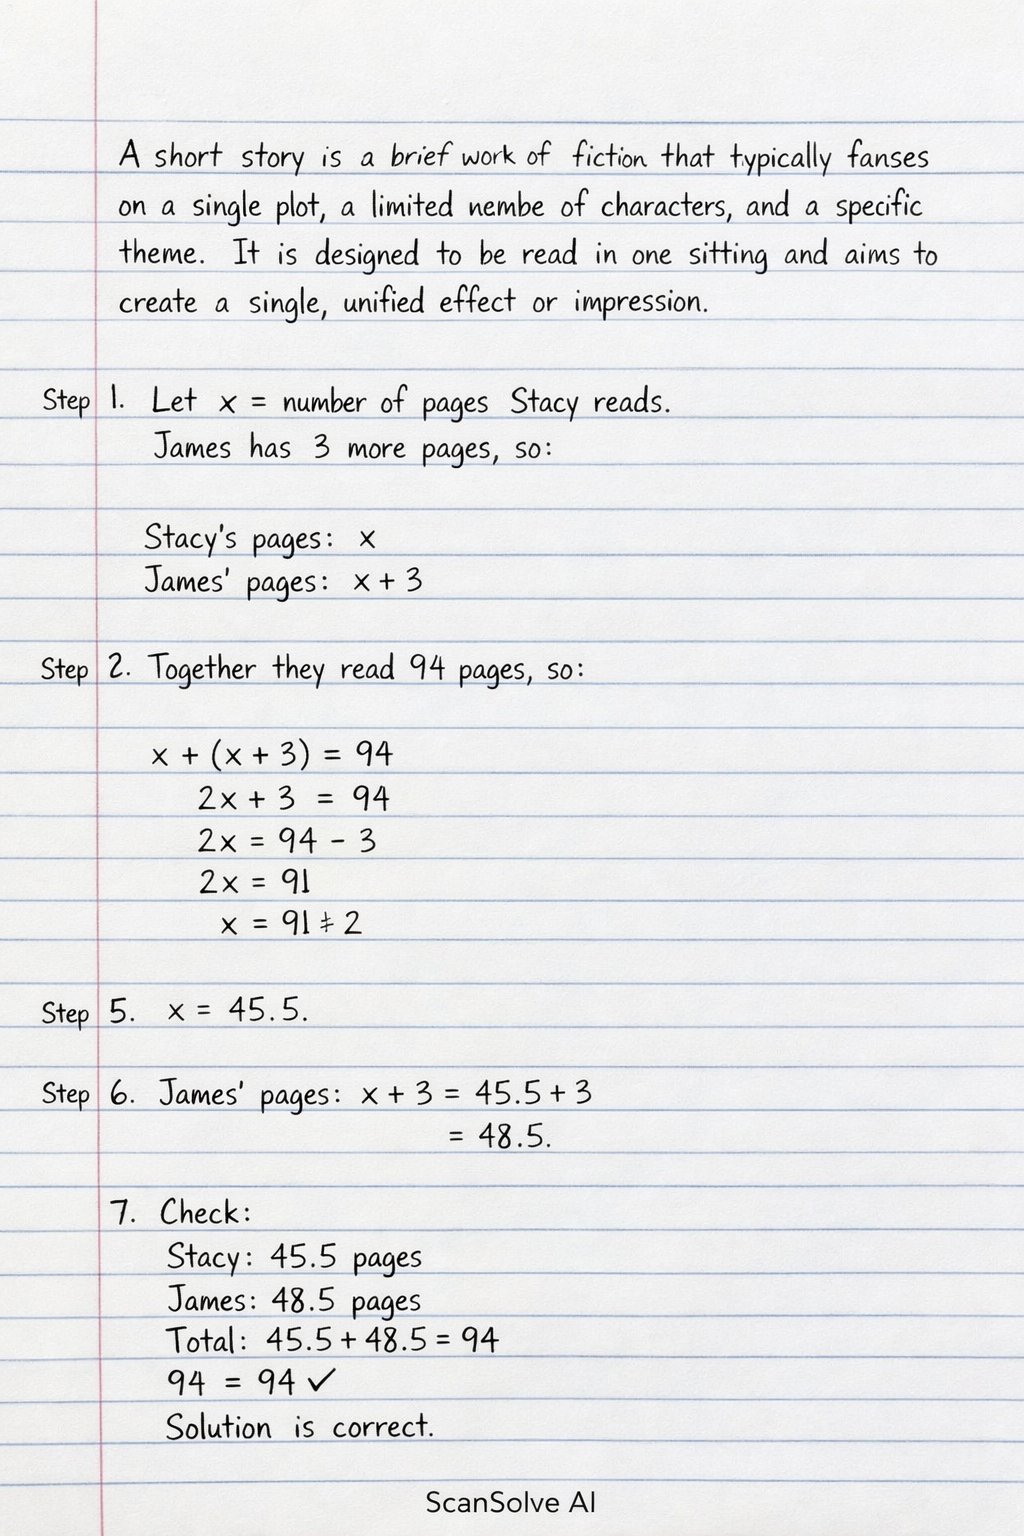 A short story is a brief work of fiction that typically fanses
on a single plot, a limited nembe of characters, and a specific
theme. It is designed to be read in one sitting and aims to
create a single, unified effect or impression.
Step 1. Let x = number of pages Stacy reads.
James has 3 more pages, so:
Stacy's pages: x
James' pages: x + 3
Step 2. Together they read 94 pages, so:
x + (x + 3) = 94
2x + 3 = 94
2x = 94 - 3
2x = 91
x = 91 ÷ 2
Step 5. x = 45.5.
Step 6. James' pages: x + 3 = 45.5 + 3
= 48.5.
7. Check:
Stacy: 45.5 pages
James: 48.5 pages
Total: 45.5 + 48.5 = 94
94 = 94 ✓
Solution is correct.
ScanSolve AI